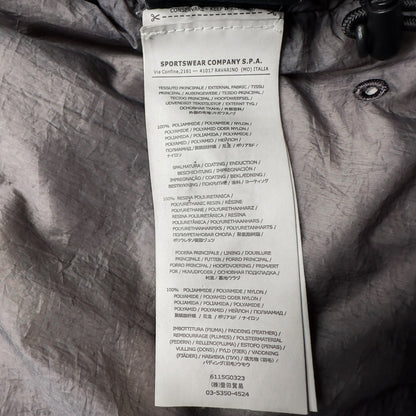 CONSERVARE - KEEP
SPORTSWEAR COMPANY S.P.A.
Via Confine,2161 — 41017 RAVARINO (MO) ITALIA
TESSUTO PRINCIPALE / EXTERNAL FABRIC / TISSU
PRINCIPAL / AUßENGEWEBE / TEJIDO PRINCIPAL /
TECIDO PRINCIPAL / HOOFDWEEFSEL /
UDVENDIGT TEKSTILSTOF / EXTERNT TYG /
ОСНОВНАЯ ТКАНЬ /
100% POLIAMMIDE / POLYAMIDE - NYLON /
POLYAMIDE / POLYAMID ODER NYLON /
POLIAMIDA / POLIAMIDA / POLYAMIDE /
POLYAMID / POLYAMID / НЕЙЛОН /
ПОЛИАМИД / 聚醯胺纖維 / 尼龙 / ポリアミド /
ナイロン
SPALMATURA / COATING / ENDUCTION /
BESCHICHTUNG / IMPREGNACIÓN /
IMPREGNAÇÃO / COATING / BEKLÆDNING /
BESTRYKNING / ПОКРЫТИЕ / コーティング
100% RESINA POLIURETANICA /
POLYURETHANIC RESIN / RÉSINE
POLYURÉTHANE / POLYURETHANHARZ /
RESINA POLIURETÁNICA / RESINA
POLIURETÂNICA / POLYURETHAANHARS /
POLYURETHANHARPIKS / POLYURETANHARTS /
ПОЛИУРЕТАНОВАЯ СМОЛА / 聚氨酯樹脂 /
ポリウレタン樹脂
FODERA PRINCIPALE / LINING / DOUBLURE
PRINCIPALE / FUTTER / FORRO PRINCIPAL /
FORRO PRINCIPAL / HOOFDVOERING / PRIMÆRT
FOR / HUVUDFODER / ОСН.ПОДКЛАДКА /
100% POLIAMMIDE / POLYAMIDE - NYLON /
POLYAMIDE / POLYAMID ODER NYLON /
POLIAMIDA / POLIAMIDA / POLYAMIDE /
POLYAMID / POLYAMID / НЕЙЛОН / ПОЛИАМИД /
聚醯胺纖維 / 尼龙 / ポリアミド / ナイロン
IMBOTTITURA (PIUMA) / PADDING (FEATHER) /
REMBOURRAGE (PLUMES) / POLSTERUNG
(FEDERN) / RELLENO(PLUMA) / ESTOFO (PENAS) /
VULLING (DONS) / FYLD (FJER) / VADDERING
(FJÄDER) / НАБИВКА (ПУХ) / 填充物 (羽毛) /
6115G0323
(株)豊田貿易
03-5350-4524